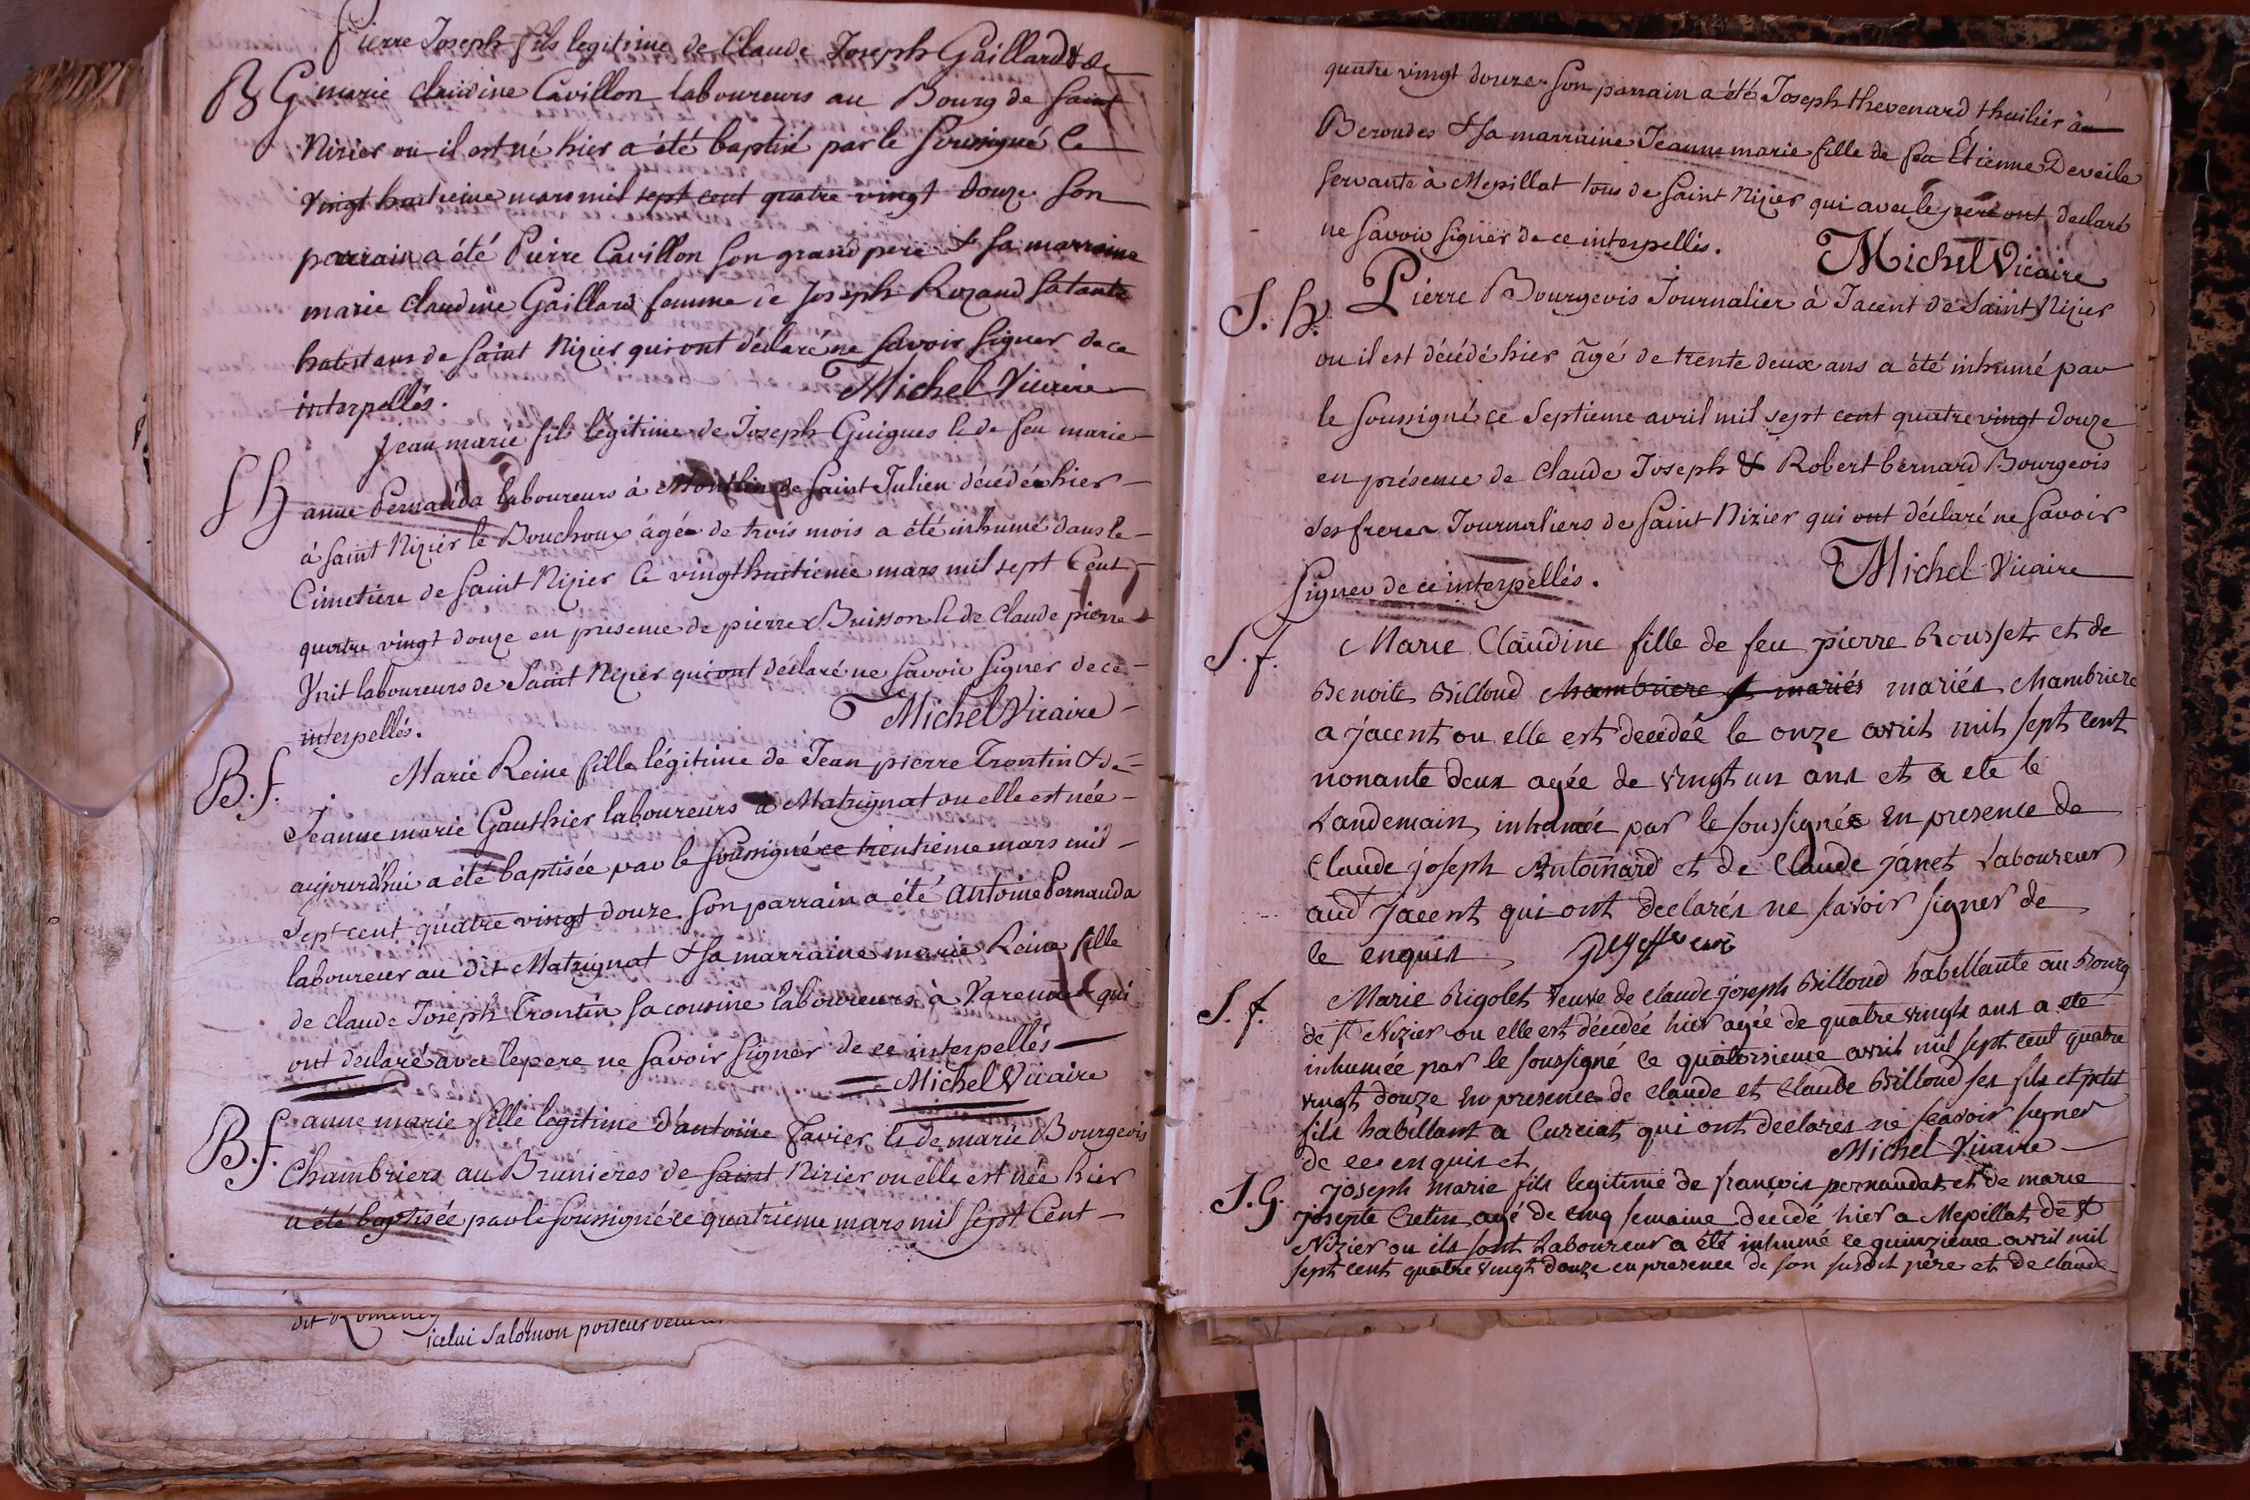 Pierre Joseph fils legitime de Claude Joseph Gaillard & de
B G marie claudine Cavillon laboureurs au Bourg de Saint
Nizier ou il est né hier a été baptisé par le soussigné ce
vingt huitieme mars mil sept cent quatre vingt douze son
parrain a été Pierre Cavillon son grand pere & sa marraine
marie claudine Gaillard femme de Joseph Rozand sa tante
habitans de saint Nizier qui ont déclaré ne savoir signer de ce
interpellés. Michel Vicaire
Jean marie fils légitime de Joseph Guigues & de feu marie
S h anne Pernauda laboureurs à Montlin de saint Julien décédé hier
à saint Nizier le Bouchoux âgé de trois mois a été inhumé dans le
Cimetiere de saint Nizier ce vingt huitieme mars mil sept Cent
quatre vingt douze en presence de pierre Buisson & de Claude pierre
laboureurs de Saint Nizier qui ont déclaré ne savoir signer de ce
interpellés. Michel Vicaire
B. f. Marie Reine fille légitime de Jean pierre Trontin & de
Jeanne marie Gauthier laboureurs à Matrignat ou elle est née
aujourd'hui a été baptisée par le soussigné ce trentieme mars mil
sept cent quatre vingt douze. son parrain a été antoine Pernauda
laboureur au dit Matrignat & sa marraine marie Reine fille
de claude Joseph Trontin sa cousine laboureurs à Varenne qui
ont déclaré avec le pere ne savoir signer de ce interpellés
Michel Vicaire
B. f. anne marie fille legitime d'antoine favier & de marie Bourgeois
Chambriers au Brunieres de saint Nizier ou elle est née hier
a été baptisée par le soussigné ce quatrieme mars mil sept Cent
dit
icelui Salomon
quatre vingt douze. son parrain a été Joseph thevenard thuilier au
Beroudes & sa marraine Jeanne marie fille de feu Étienne Deveile
servante à Mepillat tous de saint Nizier qui avec le pere ont declaré
ne savoir signer de ce interpellés. Michel Vicaire
S. h. Pierre Bourgeois Journalier à Jacent de Saint Nizier
ou il est décédé hier âgé de trente deux ans a été inhumé par
le soussigné ce septieme avril mil sept cent quatre vingt douze
en présence de claude Joseph & Robert bernard Bourgeois
ses freres Journaliers de saint Nizier qui ont déclaré ne savoir
signer de ce interpellés. Michel Vicaire
S. f. Marie Claudine fille de feu pierre Rousset et de
Benoite Billoud chambriere et mariés mariés chambriere
a jacent ou elle est decedée le onze avril mil sept cent
nonante deux agée de vingt un ans et a ete le
Landemain inhumée par le soussignée en presence de
Claude joseph Antoinard et de Claude janet Laboureur
aud Jacent qui ont declarés ne savoir signer de
ce enquis
S. f. Marie Rigolet veuve de claude joseph Billoud habittante au Bourg
de st Nizier ou elle est décédée hier agée de quatre vingts ans a ete
inhumée par le soussigné ce quatorsieme avril mil sept cent quatre
vingt douze en presence de claude et claude Billoud ses fils et petit
fils habittant a Curciat qui ont declarés ne scavoir signer
de ce enquis et Michel Vicaire
S. G. joseph marie fils legitime de françois pernaudat et de marie
josepte Cretin agé de cinq semaine decedé hier a Mepillat de st
Nizier ou ils sont Laboureur a été inhumé ce quinzieme avril mil
sept cent quatre vingt douze en presence de son susdit père et de claude